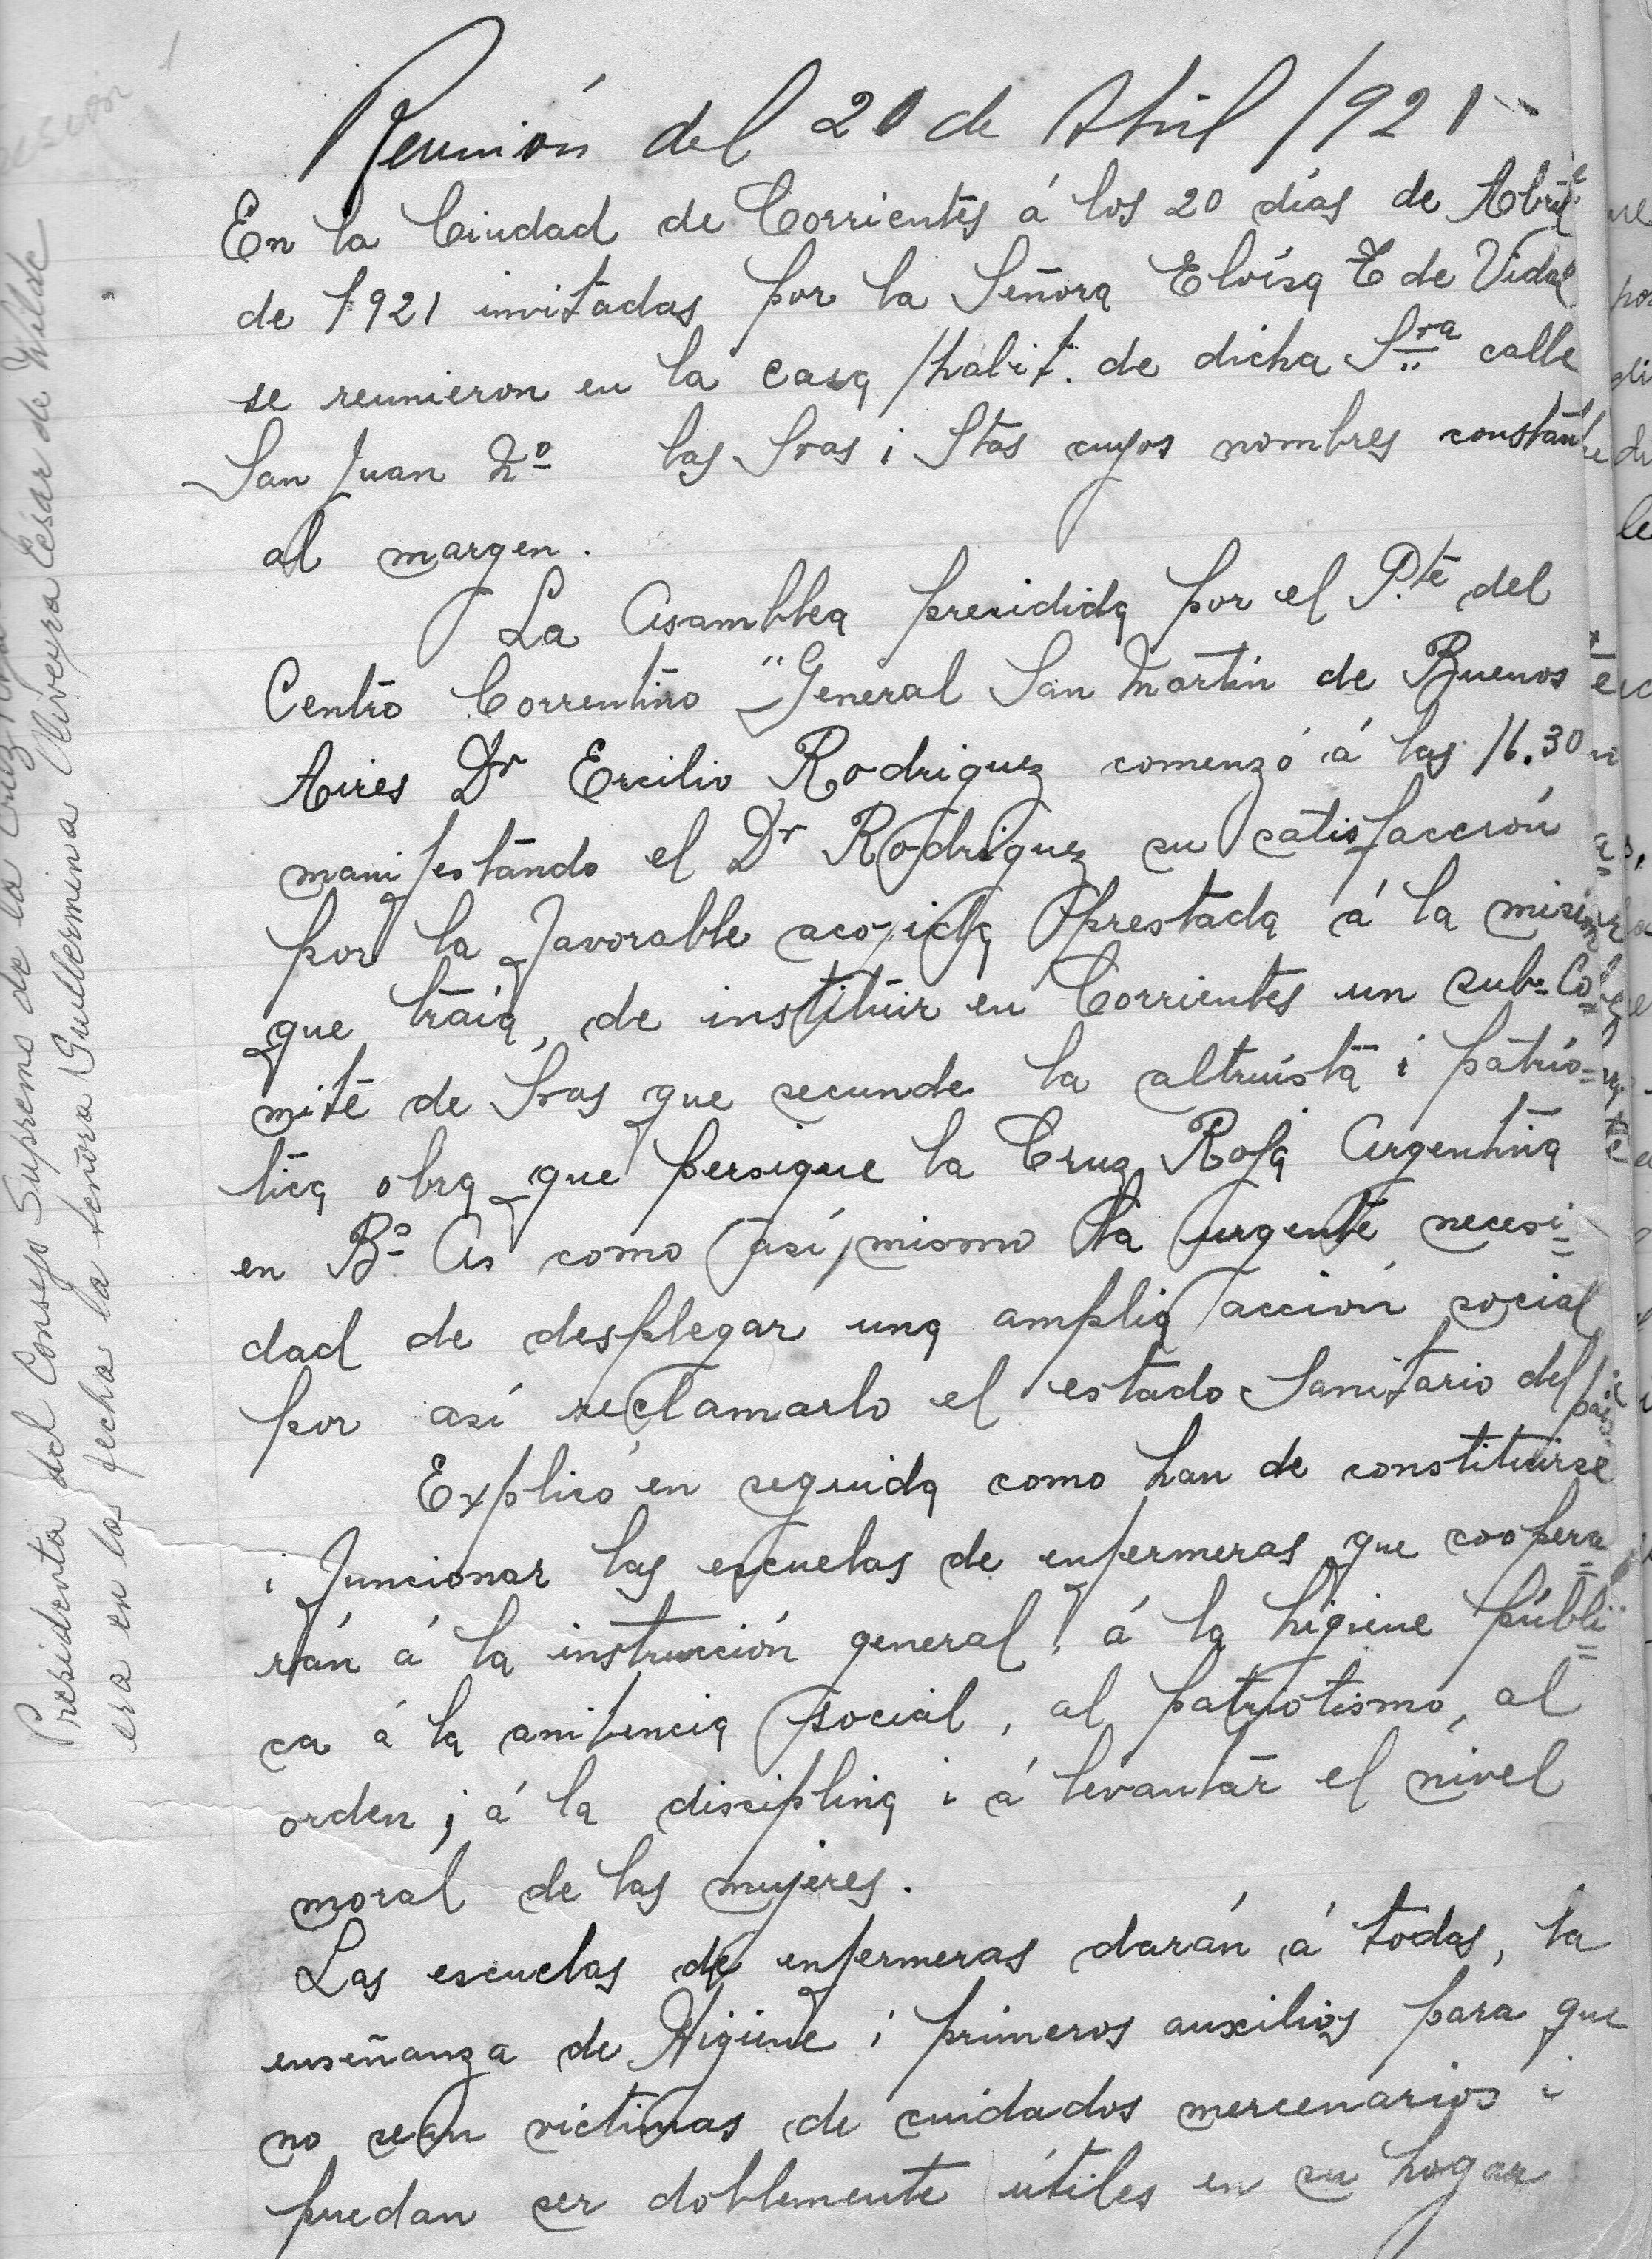 Reunión del 20 de Abril 1921
En la Ciudad de Corrientes á los 20 días de Abril
de 1921 invitadas por la Señora Eloísa T de Vidal
se reunieron en la casa habit. de dicha Sra calle
San Juan Nº las Sras i Stas cuyos nombres constan
al margen.
La Asamblea presidida por el P.te del
Centro Correntino "General San Martín de Buenos
Aires Dr Ercilio Rodriguez comenzó á las 16.30
manifestando el Dr Rodriguez su satisfacción
por la favorable acojida prestada á la misión
que traía, de instituir en Corrientes un sub-Co-
mité de Sras que secunde la altruísta i patrió-
tica obra que persigue la Cruz Roja Argentina
en Bº As como así mismo la urgente necesi=
dad de desplegar una amplia acción social
por así reclamarlo el estado Sanitario del país
Explicó en seguida como han de constituirse
i funcionar las escuelas de enfermeras que coopera=
rán á la instrucción general, á la higiene públi=
ca á la asistencia social, al patriotismo, al
orden, á la disciplina i á levantar el nivel
moral de las mujeres.
Las escuelas de enfermeras darán á todas, la
enseñanza de Higiene i primeros auxilios para que
no sean victimas de cuidados mercenarios i
puedan ser doblemente útiles en su hogar
Presidenta del Consejo Supremo de la Cruz
era en la fecha la señora Guillermina Oliveyra César de Wilde